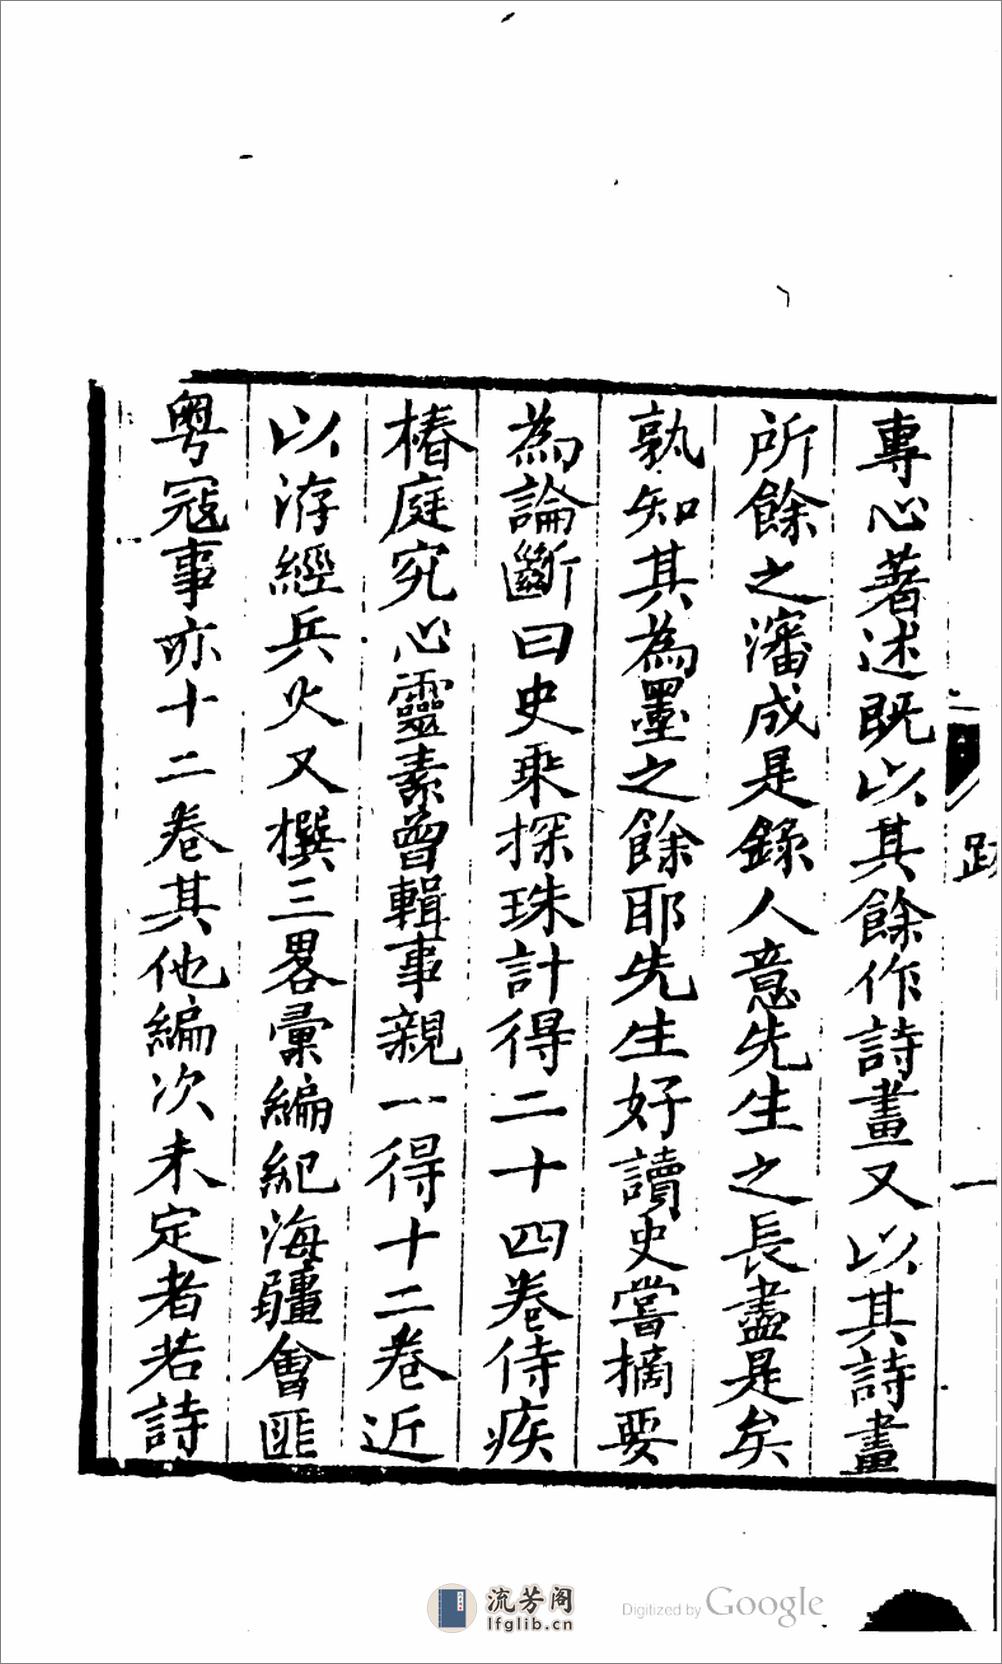 專心著述既以其餘作詩畫又以其詩畫
所餘之瀋成是錄人意先生之長盡是矣
孰知其為墨之餘耶先生好讀史嘗摘要
為論斷曰史乘探珠計得二十四卷侍疾
椿庭究心靈素曾輯事親一得十二卷近
以洊經兵火又撰三畧彙編紀海疆會匪
粤冦事亦十二卷其他編次未定者若詩
跋
一
流芳阁
lfglib.cn
Digitized by Google